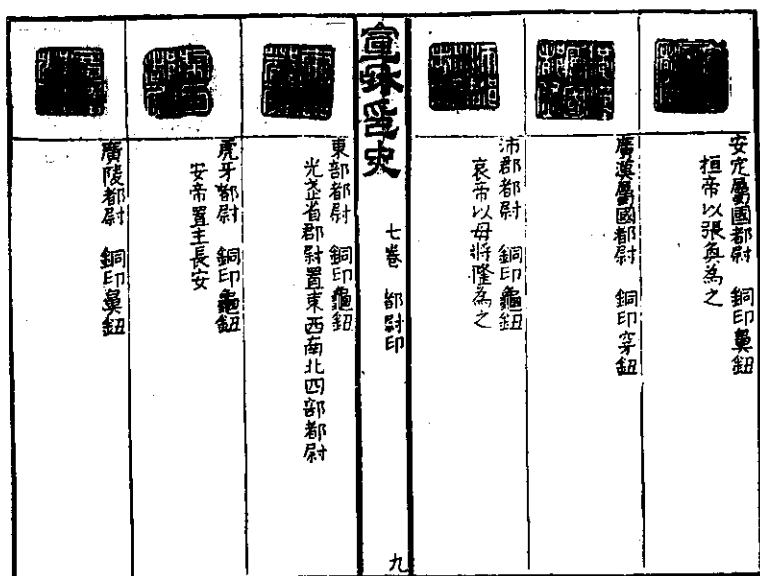 安定屬國都尉 銅印鼻鈕
桓帝以張奐為之
廣漢屬國都尉 銅印穿鈕
沛郡都尉 銅印龜鈕
哀帝以毋將隆為之
宣和印史
七卷 都尉印
九
東部都尉 銅印龜鈕
光武省郡尉置東西南北四部都尉
虎牙都尉 銅印龜鈕
安帝置主長安
廣陵都尉 銅印鼻鈕